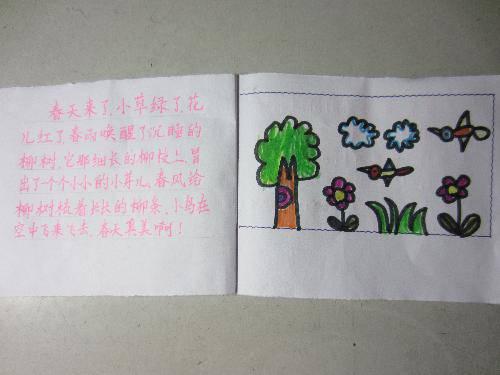 春天来了,小草绿了,花
儿红了,春雨唤醒了沉睡的
柳树,它那细长的柳枝上冒
出了一个个小小的小芽儿,春风给
柳树梳着长长的柳条,小鸟在
空中飞来飞去,春天真美啊!